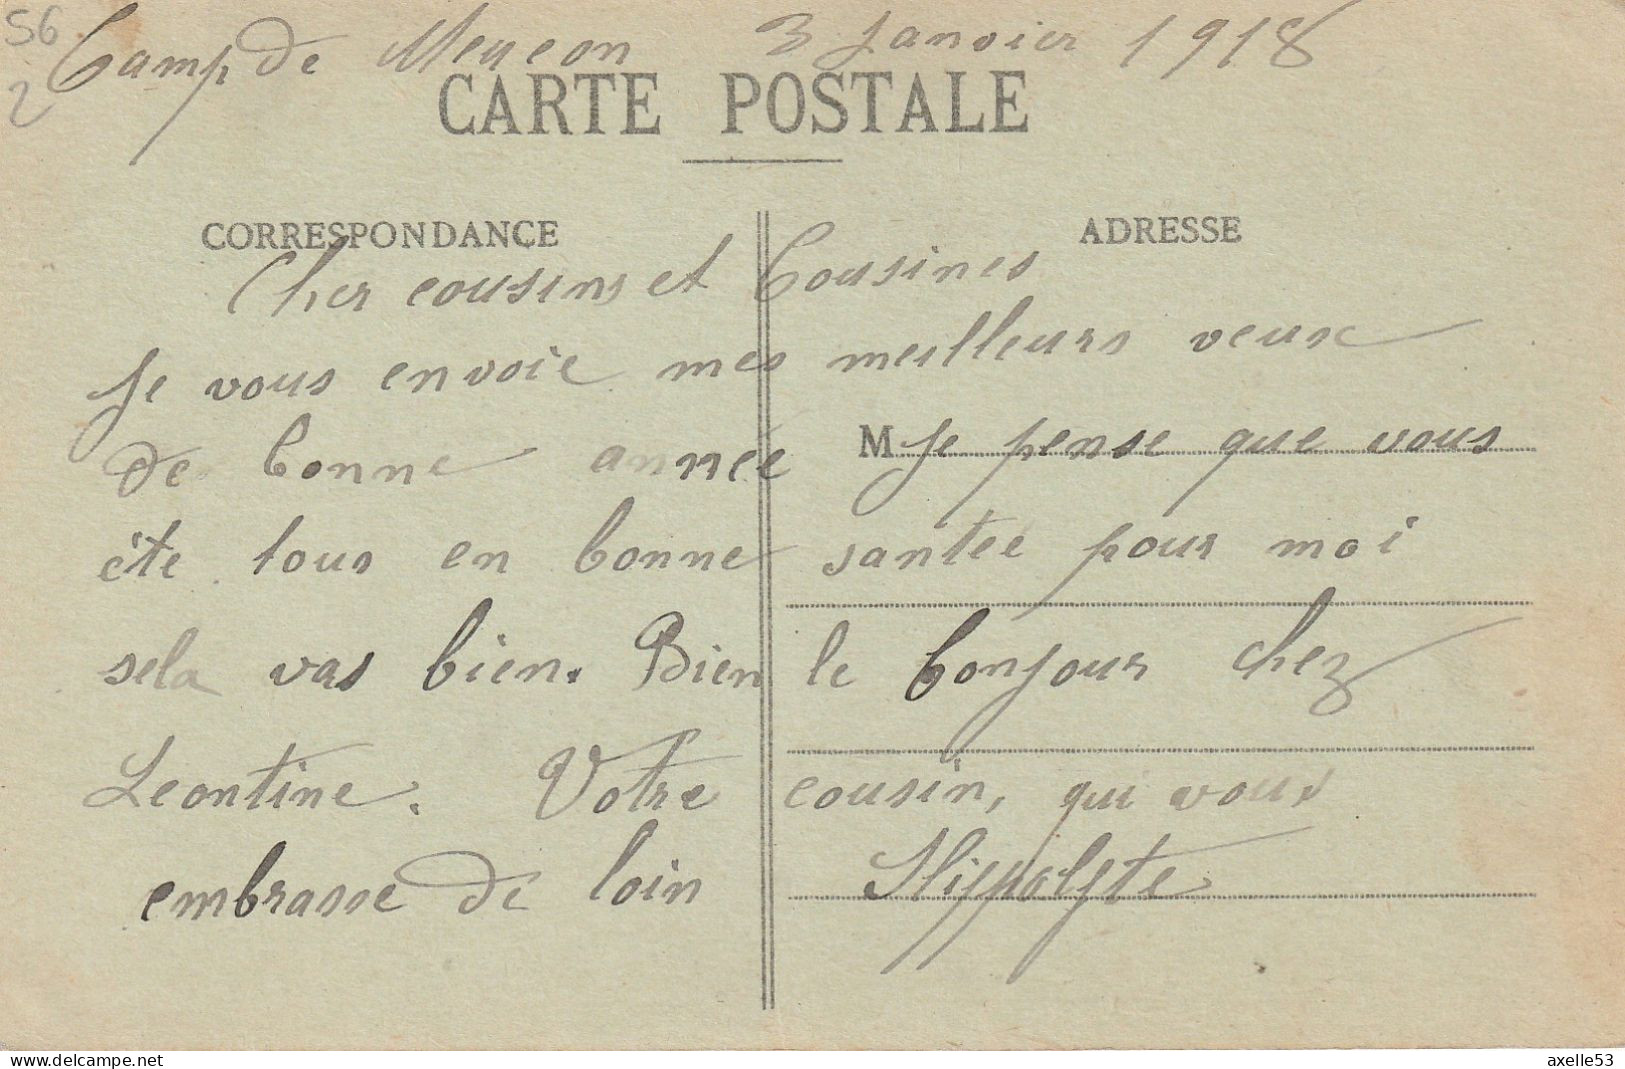 56
2
Camp de Meucon 3 Janvier 1918
CARTE POSTALE
CORRESPONDANCE
ADRESSE
Cher cousins et Cousines
Je vous envoie mes meilleurs veux
de bonne année M Je pense que vous
ête tous en bonne santée pour moi
sela vas bien. Bien le bonjour chez
Leontine. Votre cousin, qui vous
embrasse de loin Hippolyte
www.delcampe.net
axelle53